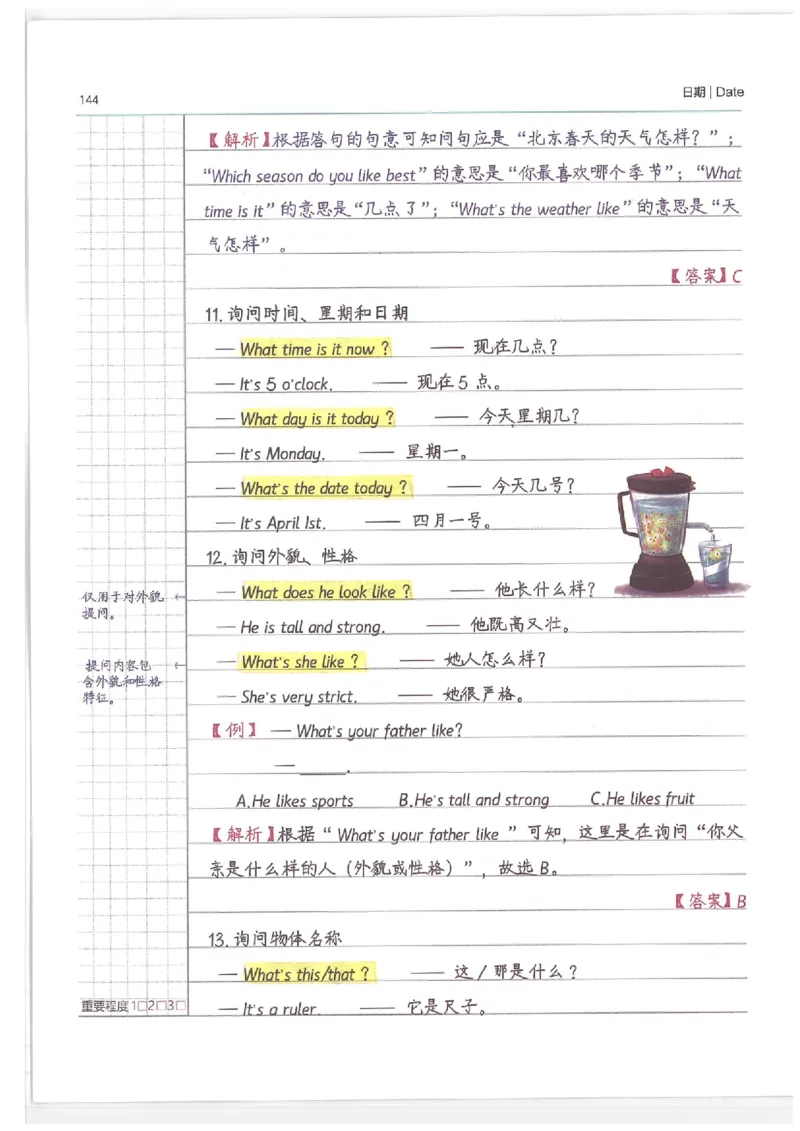 144
日期 | Date
【解析】根据答句的句意可知问句应是“北京春天的天气怎样？”；
“Which season do you like best”的意思是“你最喜欢哪个季节”；“What
time is it”的意思是“几点了”；“What's the weather like”的意思是“天
气怎样”。
【答案】C
11. 询问时间、星期和日期
— What time is it now ? —— 现在几点？
— It's 5 o'clock. —— 现在5点。
— What day is it today ? —— 今天星期几？
— It's Monday. —— 星期一。
— What's the date today ? —— 今天几号？
— It's April 1st. —— 四月一号。
12. 询问外貌、性格
仅用于对外貌
提问。
— What does he look like ? —— 他长什么样？
— He is tall and strong. —— 他既高又壮。
提问内容包
含外貌和性格
特征。
— What's she like ? —— 她人怎么样？
— She's very strict. —— 她很严格。
【例】 — What's your father like?
— ______.
A.He likes sports B.He's tall and strong C.He likes fruit
【解析】根据“ What's your father like ”可知，这里是在询问“你父
亲是什么样的人（外貌或性格）”，故选B。
【答案】B
13. 询问物体名称
— What's this/that ? —— 这/那是什么？
— It's a ruler. —— 它是尺子。
重要程度 1□2□3□